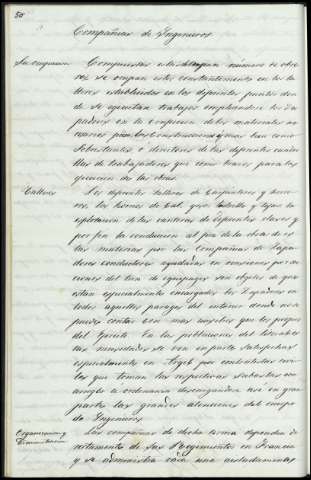 50
Compañias de Ingenieros
Su ocupacion Compuestas estas de un numero de obre
ros se ocupan estos constantemente en los ta
lleres establecidos en los diferentes puntos don
de se ejecutan trabajos empleandose los Za
padores en la confeccion de los materiales ne
cesarios para las construcciones y mas bien como
Sobrestantes o directores de las diferentes cuadri
llas de trabajadores que como brazos para la
ejecucion de las obras.
Talleres Los diferentes talleres de Carpinteros y herre
ros, los hornos de Cal, yeso, ladrillo y tejas la
esplotacion de las canteras de diferentes clases y
por fin la conduccion al pie de la obra de es
tas materias por las Compañias de Zapa
dores conductores ayudados en ocasiones por
del tren de equipages son objetos de que
estan especialmente encargados los Zapadores en
todos aquellos parages del interior donde no se
puede contar con mas ausilios que los propios
del Ejercito. En las poblaciones del litoral es
tas necesidades se ven en parte satisfechas
especialmente en Argel por contratistas
les que toman las respectivas subastas con
arreglo a ordenanza descargandose asi en gran
parte las grandes atenciones del cuerpo
de Ingenieros
Organizacion y
Administracion Las compañias de dicha arma dependen di
rectamente de sus Regimientos en Francia
y se administra cada una aisladamente